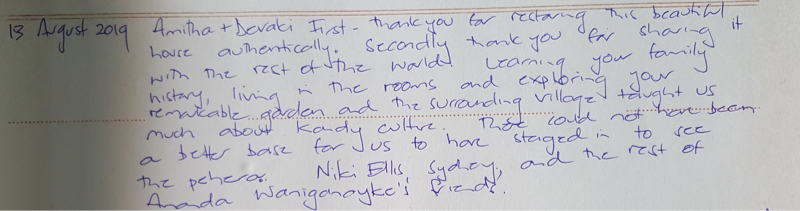 13 August 2019 Amitha + Devaki First - thank you for restoring this beautiful
house authentically. Secondly thank you for sharing it
with the rest of the world. Learning your family
history, living in the rooms and exploring your
remarkable garden and the surrounding village taught us
much about Kandy culture. There could not have been
a better base for us to have stayed in to see
the pehera. Niki Ellis, Sydney, and the rest of
Ananda Waniganayke's friends.